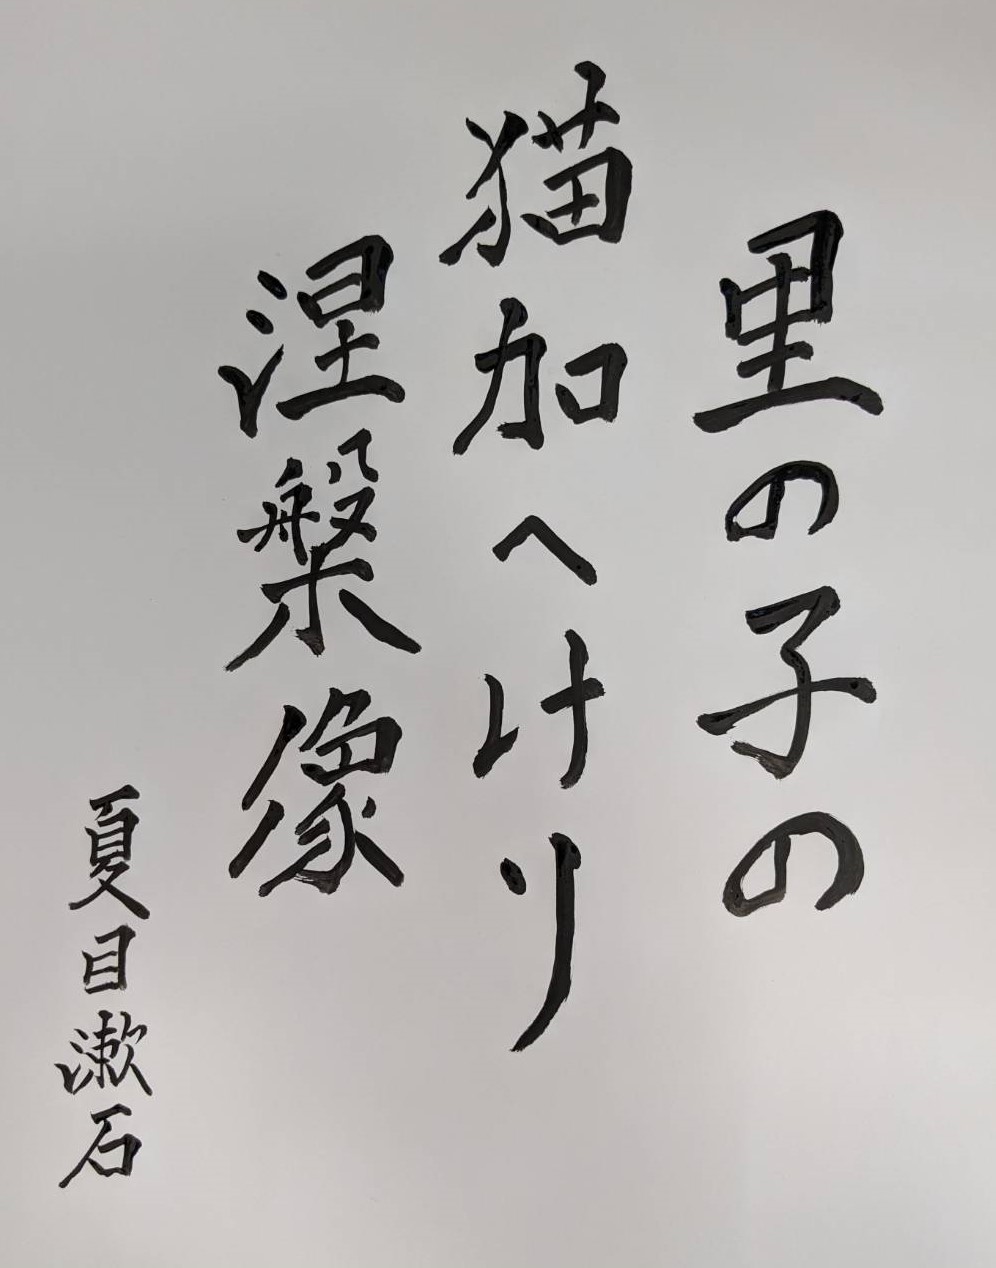 里の子の
猫加へけり
涅槃像
夏目漱石